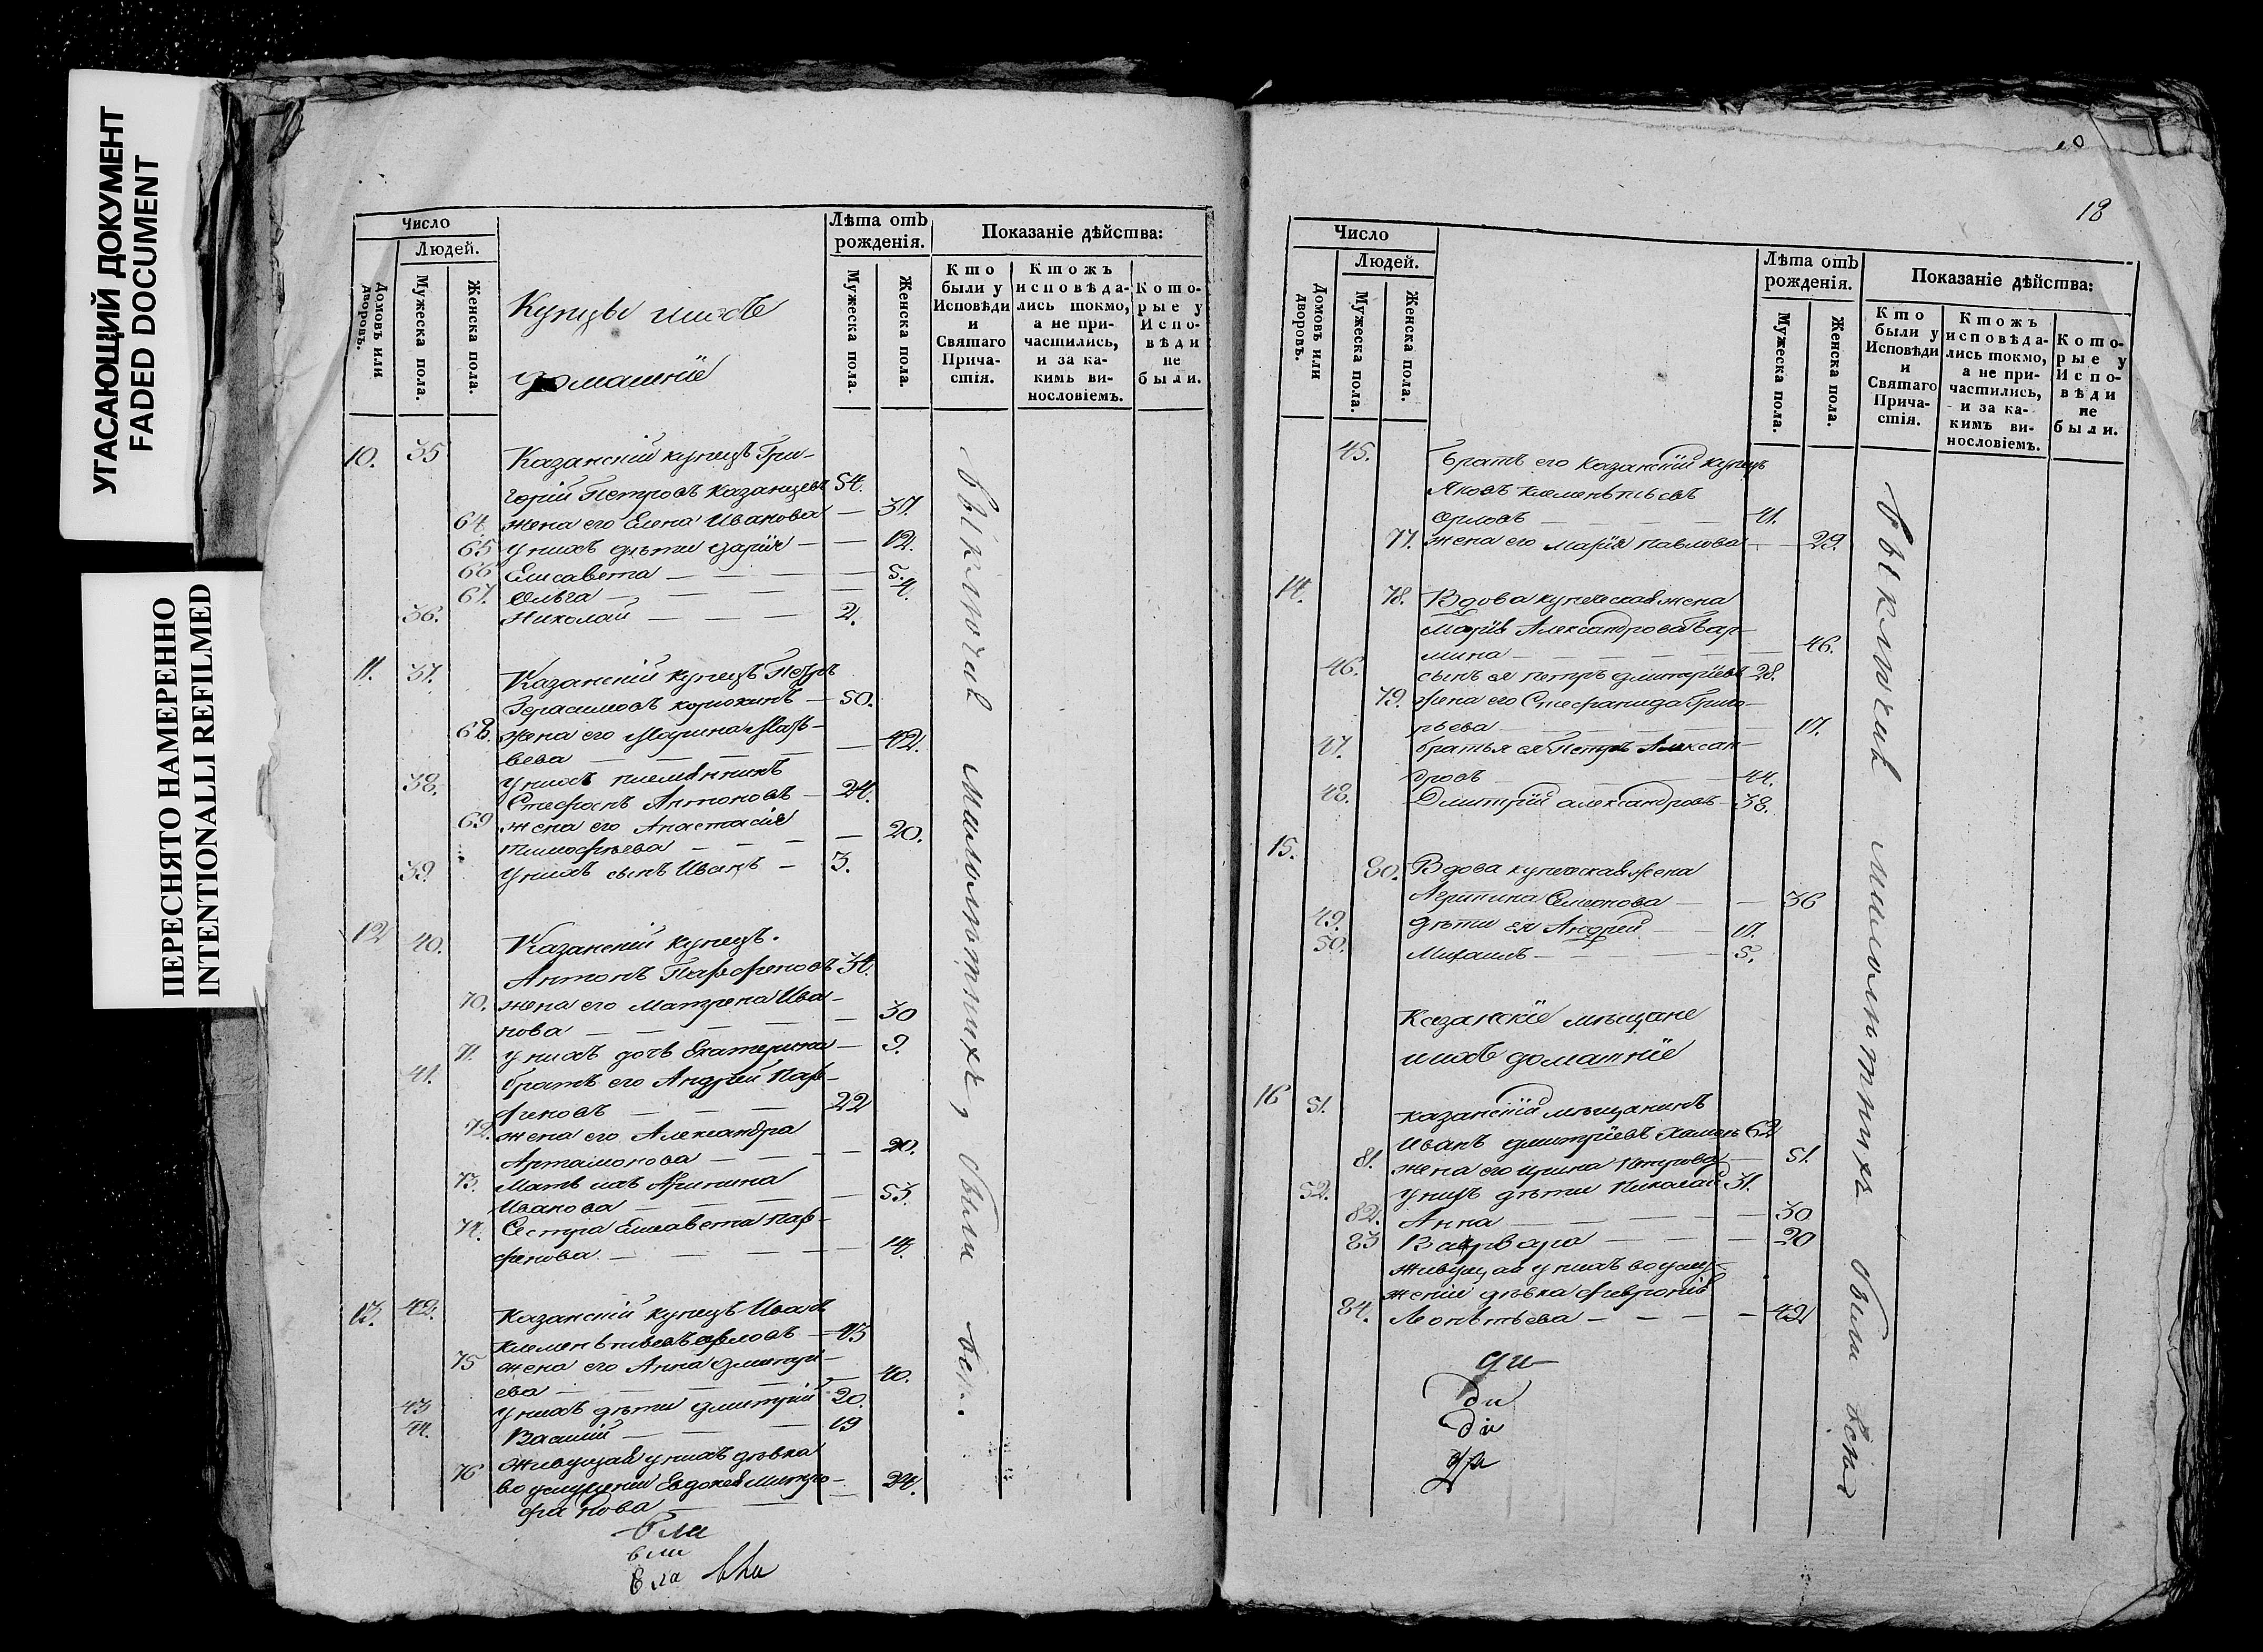 УГАСАЮЩИЙ ДОКУМЕНТ
FADED DOCUMENT
ПЕРЕСНЯТО НАМЕРЕННО
INTENTIONALLI REFILMED
Число
Людей.
Домовъ или дворовъ.
Мужеска пола.
Женска пола.
Купцы и ихъ
домашнiе
Лѣта отъ рожденiя.
Мужеска пола.
Женска пола.
Показанiе дѣйства:
Кто были у Исповѣди и Святаго Причастiя.
Ктожъ исповѣдались токмо, а не причастились, и за какимъ винословiемъ.
Которые у Исповѣди не были.
10. 35 Казанскiй купецъ Гри-
горiй Петровъ Казанцевъ 54.
64 жена его Елена Иванова — 37.
65 у нихъ дѣти Дарiя — — 12.
66 Елисавета — — — — 5.
67. Ольга — — — — 4.
36. Николай — — — 2.
11. 37. Казанскiй купецъ Петръ
Герасимовъ Корюкинъ — 50.
68. жена его Марина Мат-
вева — — — — 42.
38. у нихъ племянникъ
Стефанъ Антоновъ — 24.
69 жена его Анастасiя
Тимофѣева — — — — 20.
39. у нихъ сынъ Иванъ — 3.
12 40. Казанскiй купецъ.
Антонъ Парфеновъ 34.
70. жена его Матрена Ива-
нова — — — — — 30
71. у нихъ дочь Екатерина — 9.
41. братъ его Андрей Пар-
феновъ — — — 22
72. жена его Александра
Артамонова — — — — 20.
73. Мать ихъ Агрипина
Иванова — — — — 53.
74. Сестра Елисавета Пар-
фенова. — — — — — 14.
13. 42. Казанскiй купецъ Иванъ
Клементьевъ Орловъ — 43
75 жена его Анна Дмитрi-
ева — — — — — 40.
43 у нихъ дѣти Дмитрiй 20.
44. Василiй — — — 19
Живущая у нихъ дѣвка
76 во услуженiи Евдокея Митро-
фанова — — — 24.
включая малолѣтнихъ, были вси.
18
Число
Людей.
Домовъ или дворовъ.
Мужеска пола.
Женска пола.
Лѣта отъ рожденiя.
Мужеска пола.
Женска пола.
Показанiе дѣйства:
Кто были у Исповѣди и Святаго Причастiя.
Ктожъ исповѣдались токмо, а не причастились, и за какимъ винословiемъ.
Которые у Исповѣди не были.
45. Братъ его Казанскiй купецъ
Яковъ Клементьевъ
Орловъ — — — — 41.
77. жена его Марiя Павлова — — 29.
14. 78. Вдова купеческая жена
Марiя Александрова
— — — — — 46.
46. сынъ ея Петръ Дмитрiевъ 28.
79. жена его Стефанида Григо-
рьева — — — — — 17.
47. братья ея Петръ Алексан-
дровъ — — — — 44.
48. Дмитрiй Александровъ — 38.
15.
80. Вдова купеческая жена
Агрипина Семенова — — 36
49. дѣти ея Андрей — — 17.
50. Михаилъ — — — — 5.
Казанскiе мѣщане
и ихъ домашнiе
16 51. Казанскiй мѣщанинъ
Иванъ Дмитрiевъ 62
81. жена его Ирина Петрова — 51.
52. у нихъ дѣти Николай 31.
82. Анна — — — — — 30
83 Варвара — — — — 20
живущая у нихъ во услу-
женiи дѣвка Февронiя
84. Леонтьева — — — — 42
включая малолѣтнихъ были всѣ